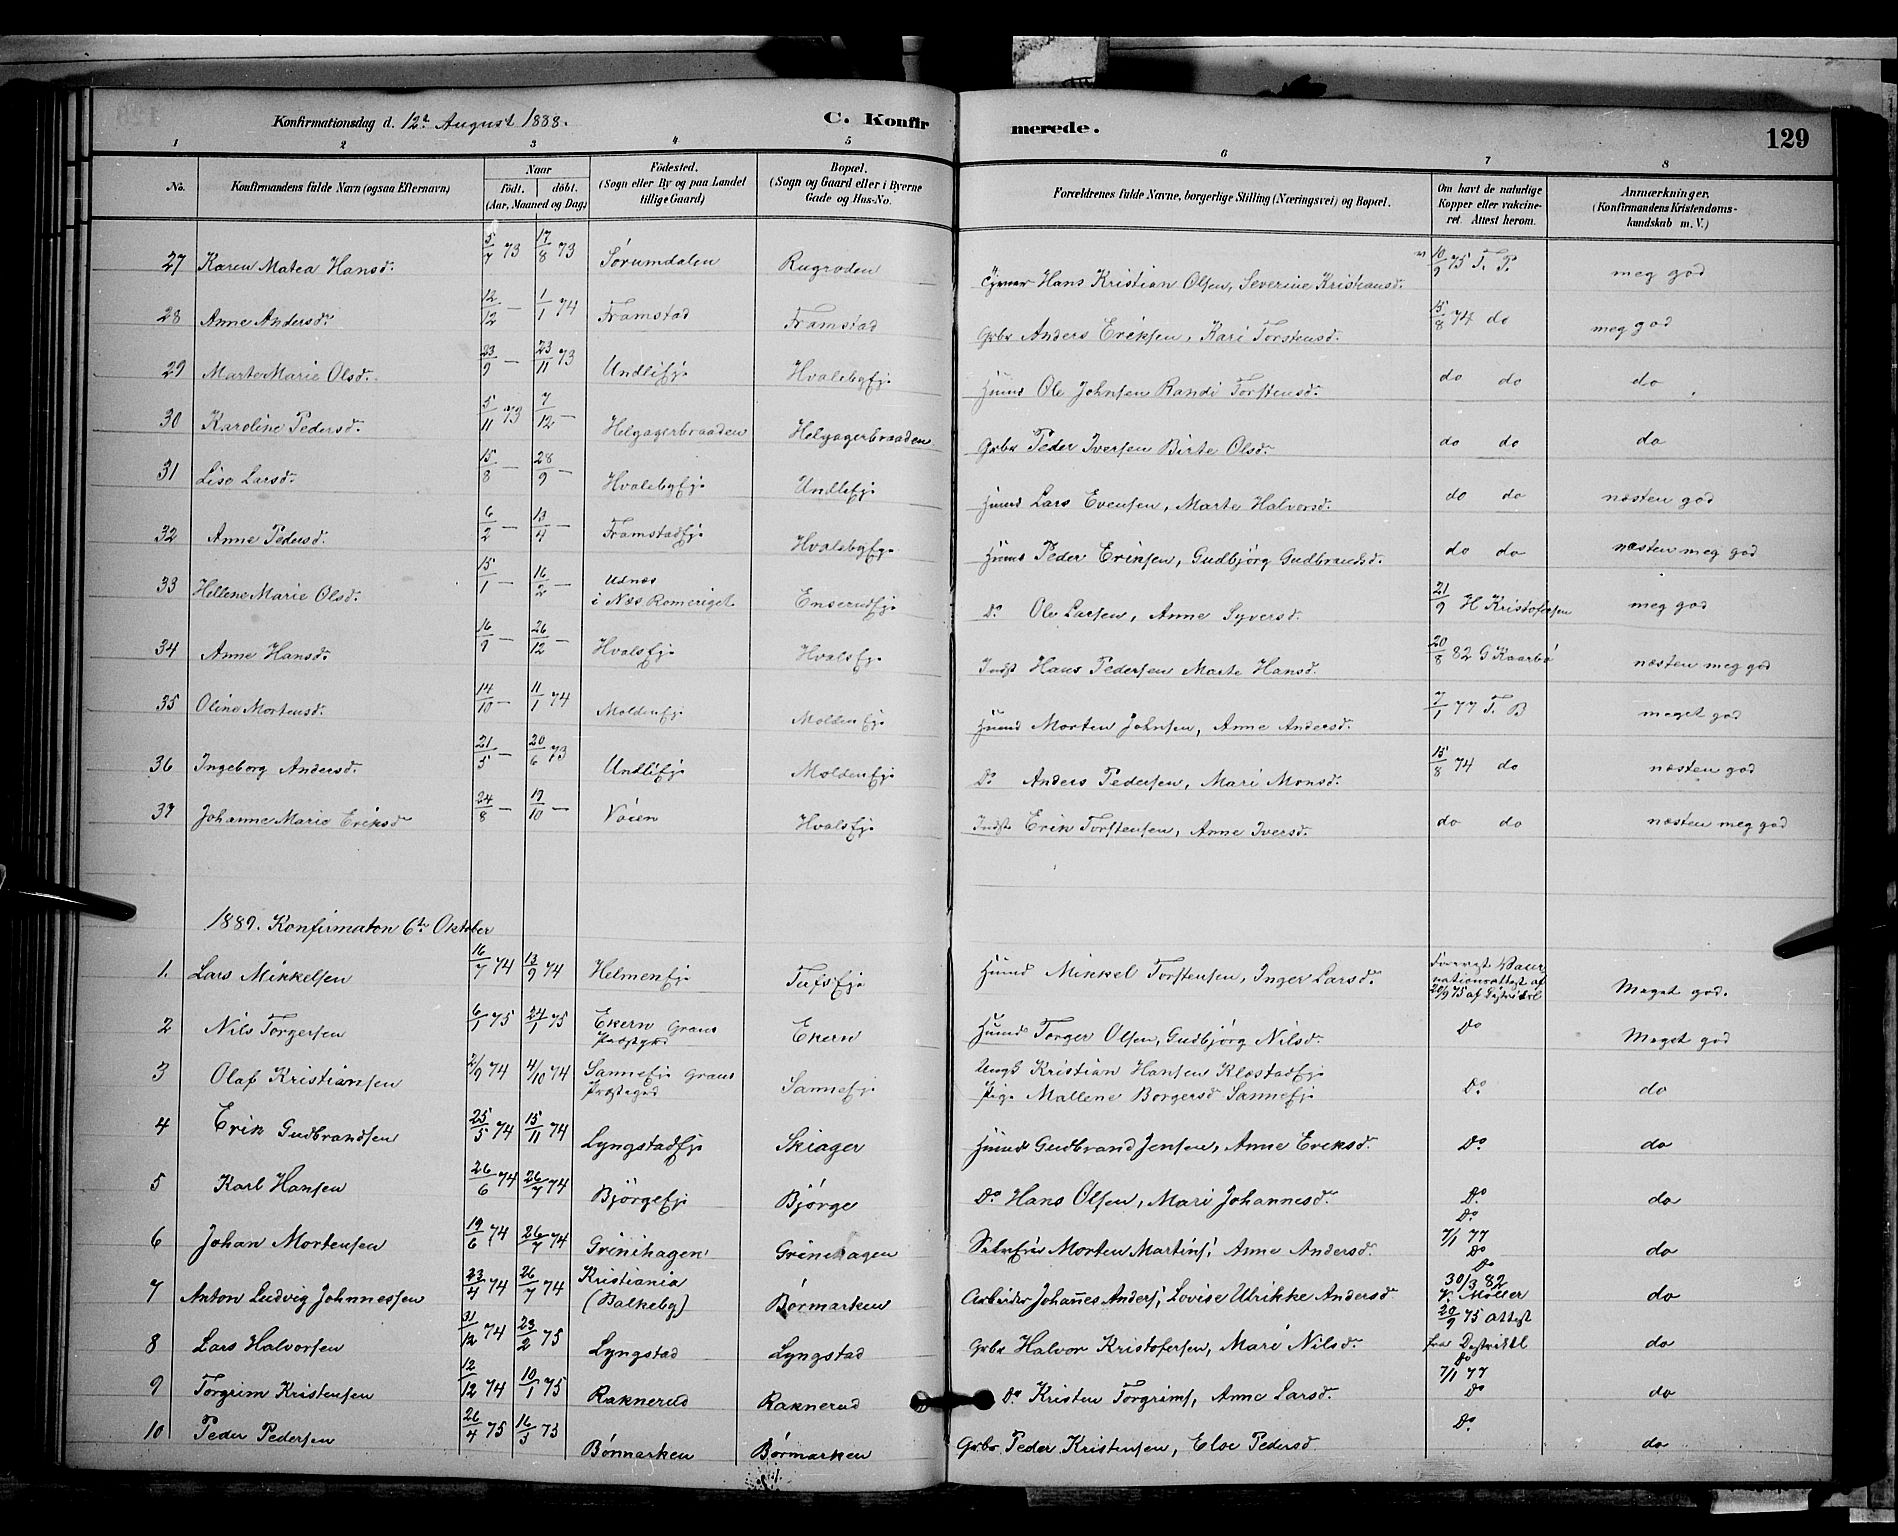 Konfirmationsdag d. 12te August 1888. C. Konfirmerede. 129
1 2 3 4 5 6 7 8
No. Konfirmandens fulde Navn (ogsaa Efternavn) Naar født. døbt. (Aar, Maaned og Dag) Fødested. (Sogn eller By og paa Landet tillige Gaard) Bopæl. (Sogn og Gaard eller i Byerne Gade og Hus-No. Forældrenes fulde Navne, borgerlige Stilling (Næringsvei) og Bopæl. Om havt de naturlige Kopper eller vakcineret. Attest herom. Anmærkninger. (Konfirmandens Kristendomskundskab m. V.)
27 Karen Matea Hansd. 5/7 73 17/8 73 Sørumdalen Rugroden Hans Kristian Olsen, Severine Kristiansd. 10/9 75 T. P. meg god
28 Anne Andersd. 12/12 — 1/1 74 Framstad Framstad Gbr Anders Eriksen, Kari Torstensd. 15/8 74 do meg god
29 Marte Marie Olsd. 23/9 — 23/11 73 Undliej. Hvalebyej. Husmd Ole Johnsen Randi Torstensd. do do do
30 Karoline Pedersd. 5/11 73 7/12 — Helgagerbraaden Helgagerbraaden Gbr Peder Iversen Birte Olsd. do do do
31 Lise Larsd. 15/8 — 28/9 — Hvalebyej. Undliej. Husmd Lars Evensen, Marte Halvorsd. do do næsten god
32 Anne Pedersd. 6/2 — 13/4 — Framstadej. Hvalebyej. Husmd Peder Eriksen, Gudbjørg Gudbrandsd. do do næsten meg god
33 Hellene Marie Olsd. 15/1 — 16/2 — Udnæs i Næs Romeriget Enserudej. Do Ole Larsen, Anne Syversd. 21/9 H Kristofersen meg god
34 Anne Hansd. 16/9 — 26/12 — Hvalsej. Hvalsej. Indst Hans Pedersen Marte Hansd. 20/8 82 G Kaarbø næsten meg god
35 Oline Mortensd. 14/10 — 11/1 74 Moldenej. Moldenej. Husmd Morten Johnsen, Anne Andersd. 7/1 77 T. B meget god
36 Ingeborg Andersd. 21/5 — 20/6 73 Undliej. Moldenej. Do Anders Pedersen, Mari Monsd. 15/8 74 do næsten god
37 Johanne Marie Eriksd 24/8 — 19/10 — Vøien Hvalsej. Indst Erik Torstensen, Anne Iversd. do do næsten meg god
1889. Konfirmaton 6te Oktober
1. Lars Mikkelsen 16/7 74 13/9 74 Helmenej. Tufsej. Husmd Mikkel Torstensen, Inger Larsd. Forevist Vaccinationsattest af 20/9 75 af Meget god.
2 Nils Torgersen 6/1 75 24/1 75 Ekern Grans Præstegjd Ekern Husmd Torger Olsen, Gudbjørg Nilsd. Do Meget god
3 Olaf Kristiansen 2/9 74 4/10 74 Sanneej. Grans Præstegjd Sanneej. Ungk Kristian Hansen Klæstadej. Pige Mallene Borgersd Sanneej. Do do
4 Erik Gudbrandsen 25/5 74 15/11 74 Lyngstadej. Skiager Husmd Gudbrand Jensen, Anne Eriksd. Do do
5 Karl Hansen 26/6 74 26/7 74 Bjørgeej. Bjørge Do Hans Olsen, Mari Johannesd. Do do
6 Johan Mortensen 19/6 74 26/7 74 Grinihagen Grinihagen Selveier Morten Martins, Anne Andersd. Do 7/1 77 Do do
7 Anton Ludvig Johnnessen 23/4 74 26/7 74 Kristiania (Balkeby) Børmarken Arbeider Johannes Anders, Lovise Ulrikke Andersd. Do 30/3 82 Møller do
8 Lars Halvorsen 31/12 74 23/2 75 Lyngstad Lyngstad Gbr Halvor Kristofersen, Mari Nilsd. 20/9 75 attest fra Distriktl do
9 Torgrim Kristensen 12/12 74 10/1 75 Raknerud Raknerud Do Kristen Torgrims, Anne Larsd. Do 7/1 77 Do do
10 Peder Pedersen 26/4 75 16/5 75 Børmarken Børmarken Gbr Peder Kristensen, Else Pedersd Do do